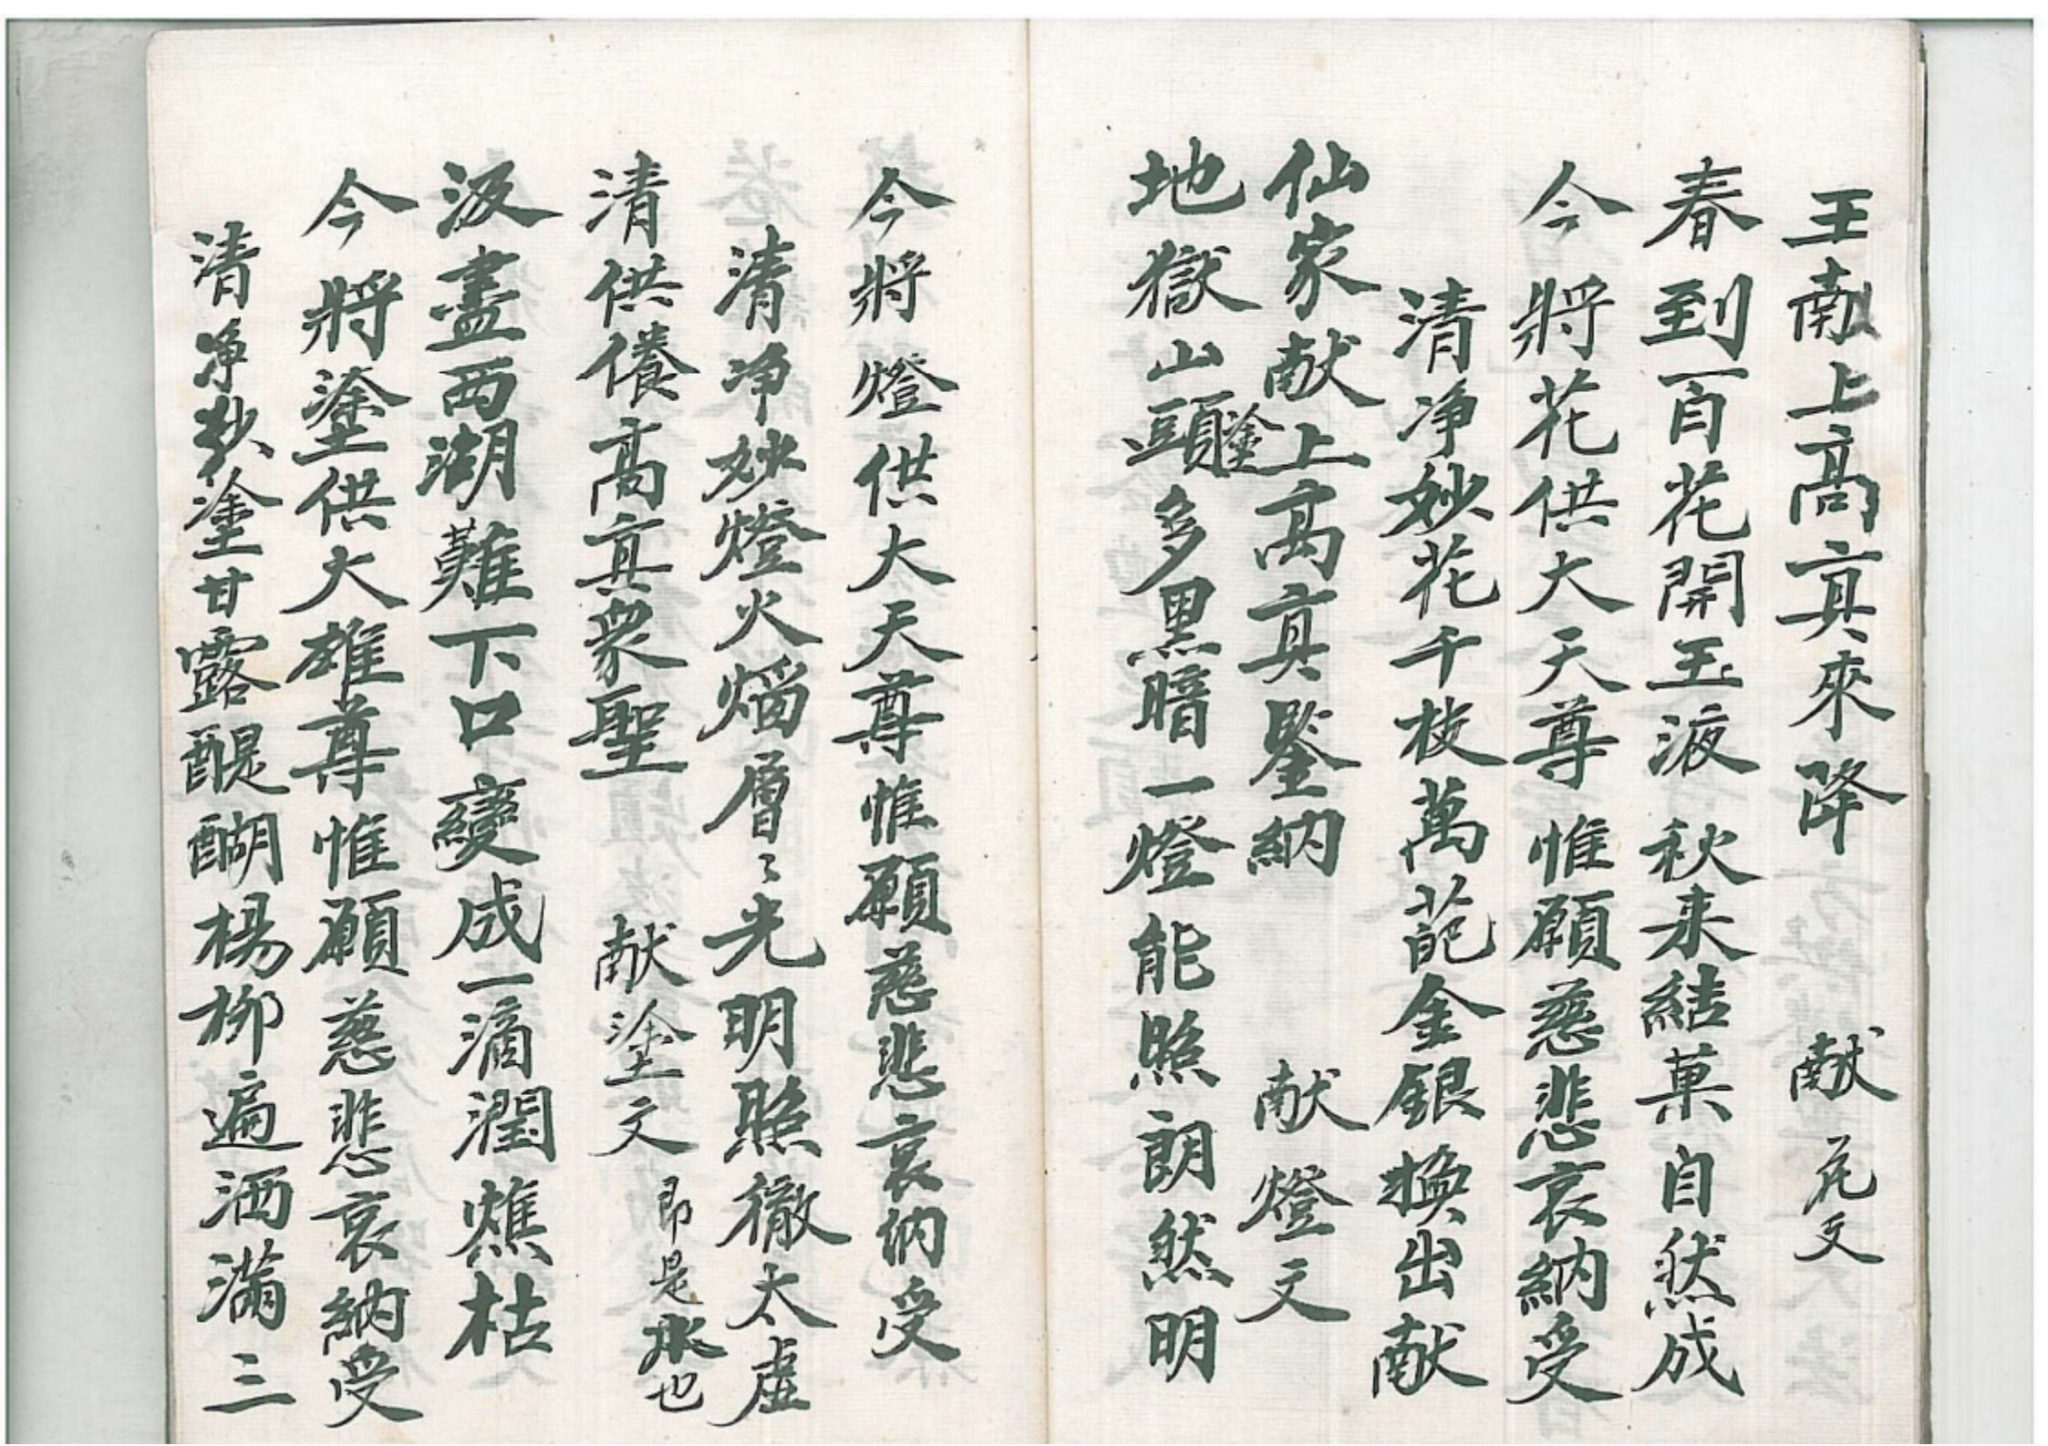 王献上高真來降　献花文
春到百花開玉液秋来結菓自然成
今將花供大天尊惟願慈悲哀納受
清净妙花千枝萬葩金銀換出献
仙家献上高真鑒納　献燈文
地獄山頭多黑暗一燈能照朗然明
塗
今將燈供大天尊惟願慈悲哀納受
清净妙燈火熖層〻光明照徹太虛
清供養高真衆聖　献塗文
即是水也
汲盡西湖難下口變成一滴潤燋枯
今將塗供大雄尊惟願慈悲哀納受
清净妙塗甘露醍醐楊柳遍洒滿三